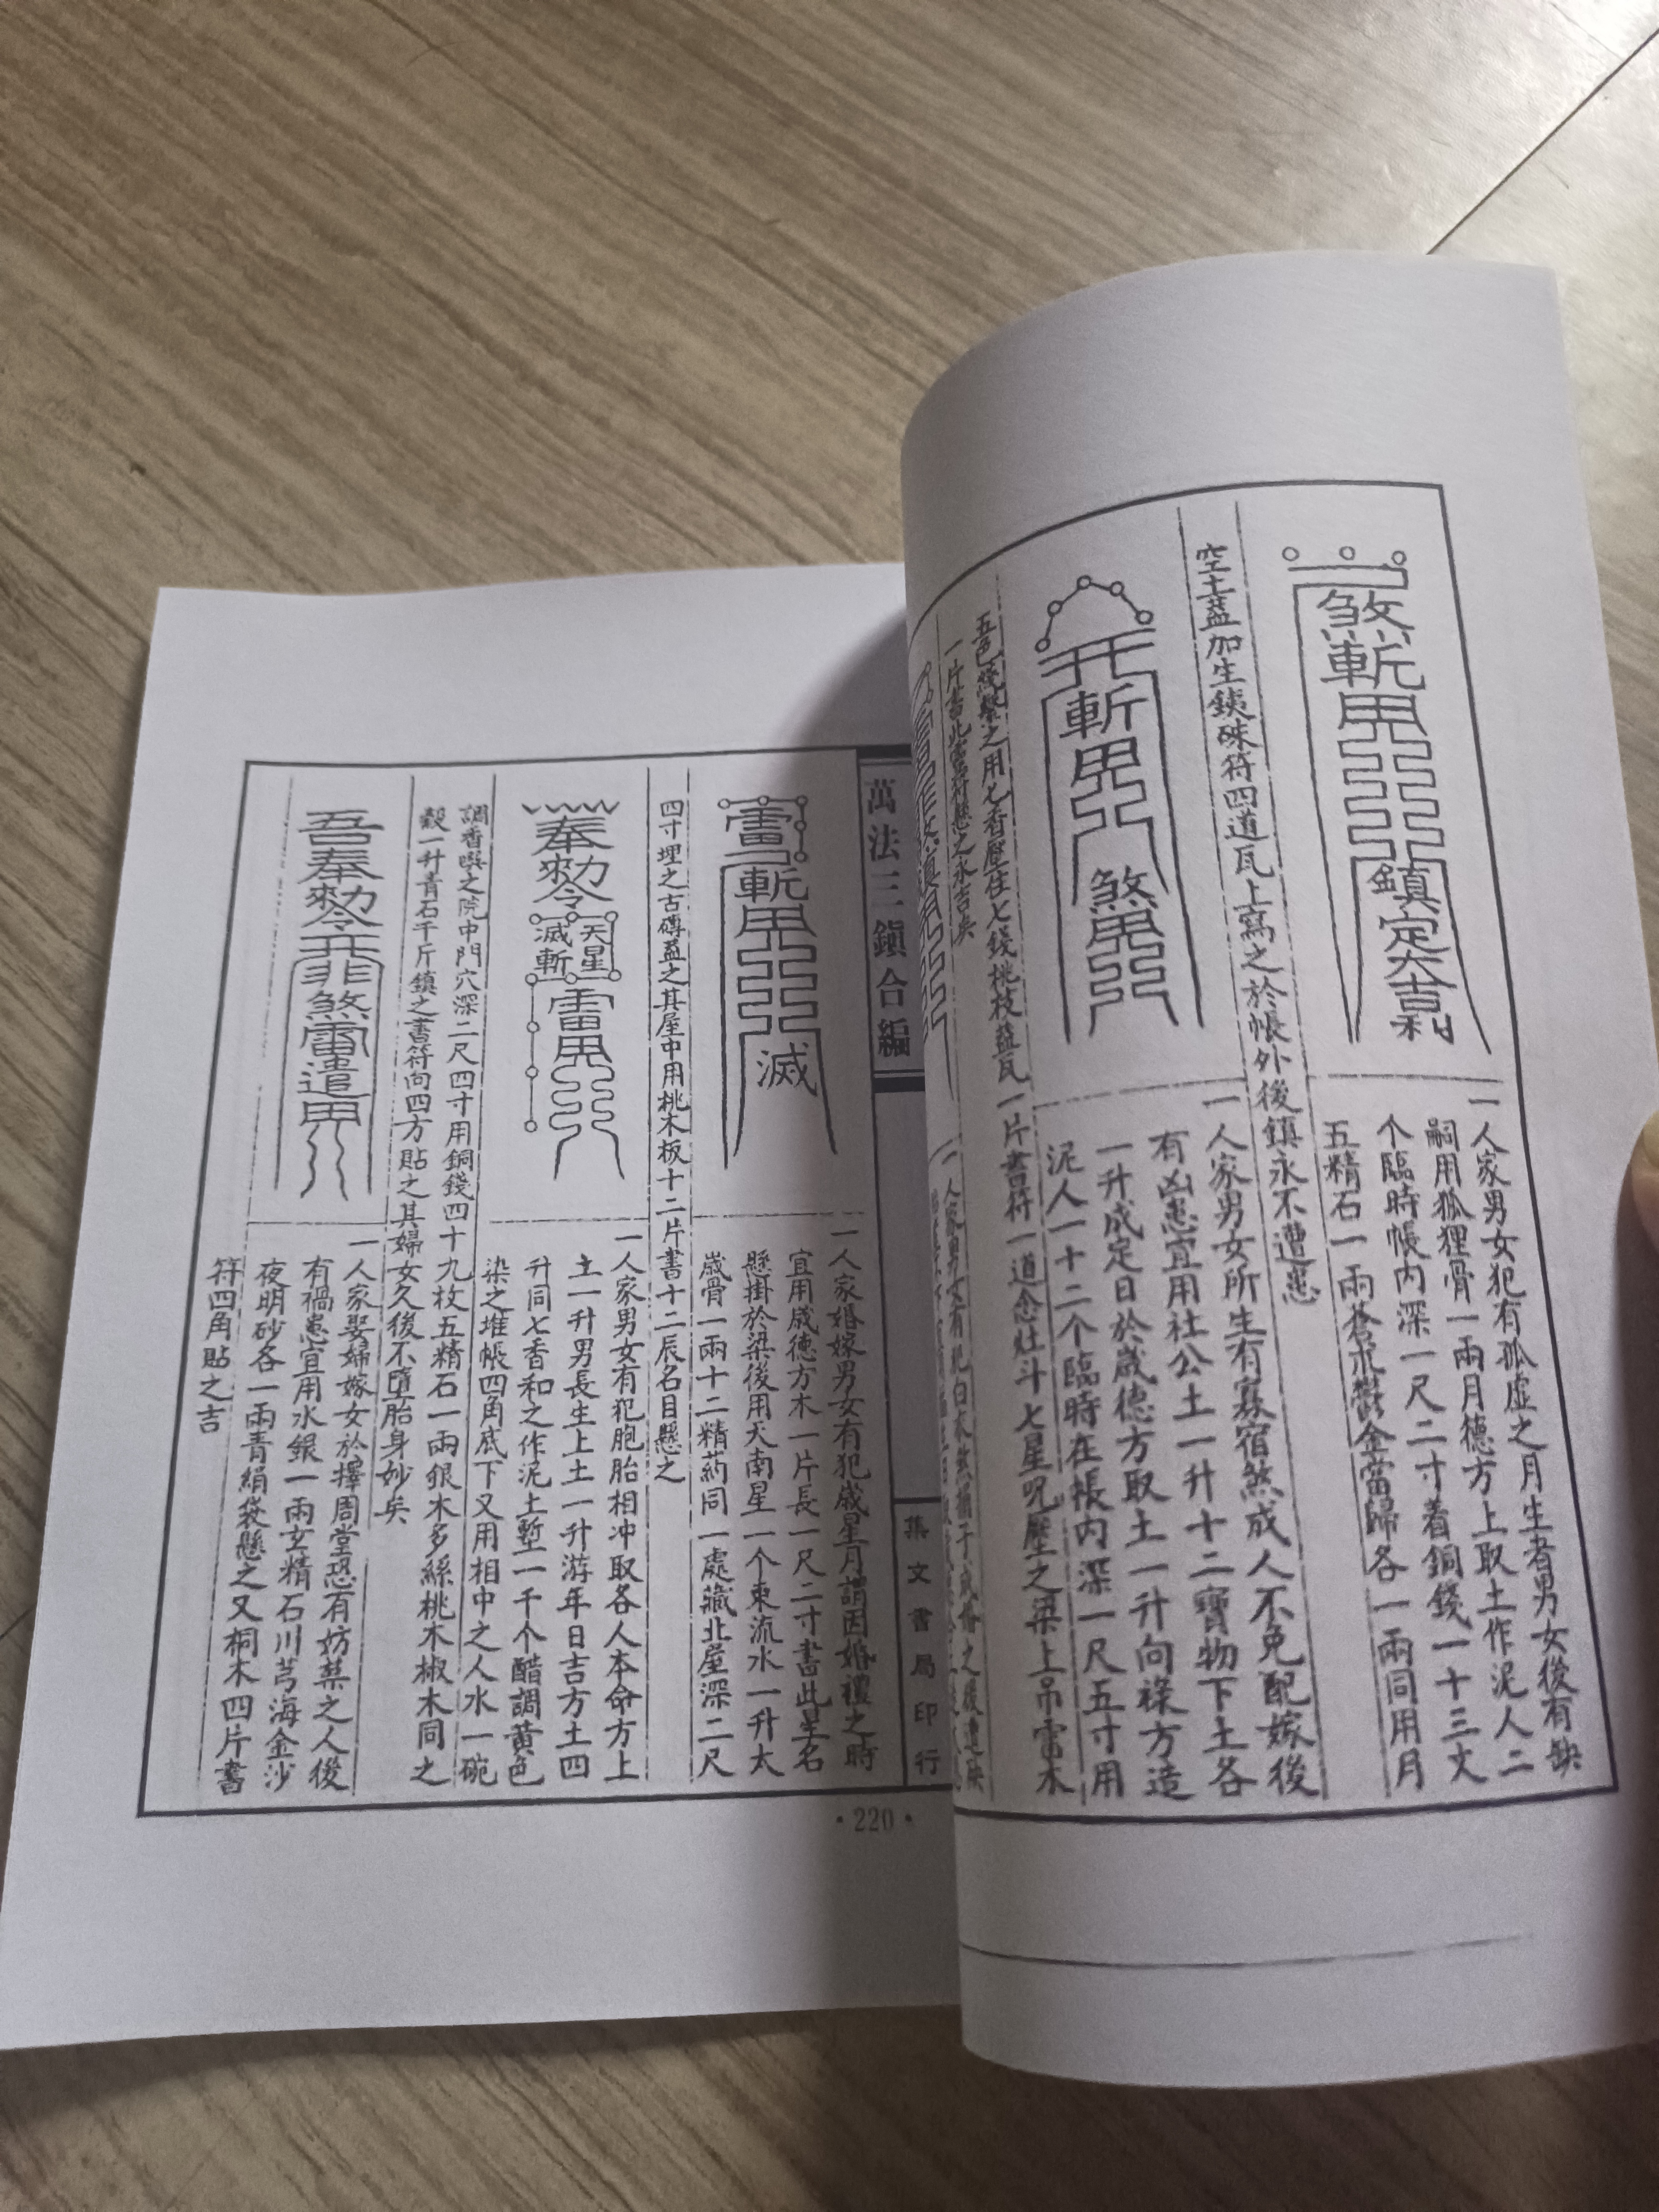 煞斬
鎮定大吉利
一人家男女犯有孤虛之月生者男女後有缺
嗣用狐狸骨一兩月德方上取土作泥人二
个臨時帳內深一尺二寸着銅錢一十三文
五精石一兩蒼朮鬱金當歸各一兩同用月
空土蓋加生鉄硃符四道瓦上寫之於帳外後鎮永不遭患
斬
煞
一人家男女所生有寡宿煞成人不免配嫁後
有凶患宜用社公土一升十二寶物下土各
一升成定日於歲德方取土一升向祿方造
泥人一十二个臨時在帳內深一尺五寸用
五色綫繫之用七香壓住七錢桃枝蓋瓦一片書符一道念灶斗七星咒壓之梁上吊雷木
一片書此雷符懸之永吉矣
一人家男女有犯白衣煞
萬法三鎮合編
集文書局印行
·220·
雷
斬
滅
一人家婚嫁男女有犯歲星月謂因婚禮之時
宜用歲德方木一片長一尺二寸書此星名
懸掛於梁後用天南星一个東流水一升太
歲骨一兩十二精葯同一處藏北屋深二尺
四寸埋之古磚蓋之其屋中用桃木板十二片書十二辰名目懸之
奉勅令
天星
滅斬
雷
一人家男女有犯胞胎相冲取各人本命方上
土一升男長生上土一升游年日吉方土四
升同七香和之作泥土塹一千个醋調黃色
染之堆帳四角底下又用相中之人水一碗
調香噀之院中門穴深二尺四寸用銅錢四十九枚五精石一兩銀木多絲桃木椒木同之
穀一升青石千斤鎮之書符向四方貼之其婦女久後不墮胎身妙矣
吾奉勅令
煞雷遣
一人家娶婦嫁女於擇周堂恐有妨葉之人後
有禍患宜用水銀一兩玄精石川芎海金沙
夜明砂各一兩青絹袋懸之又桐木四片書
符四角貼之吉